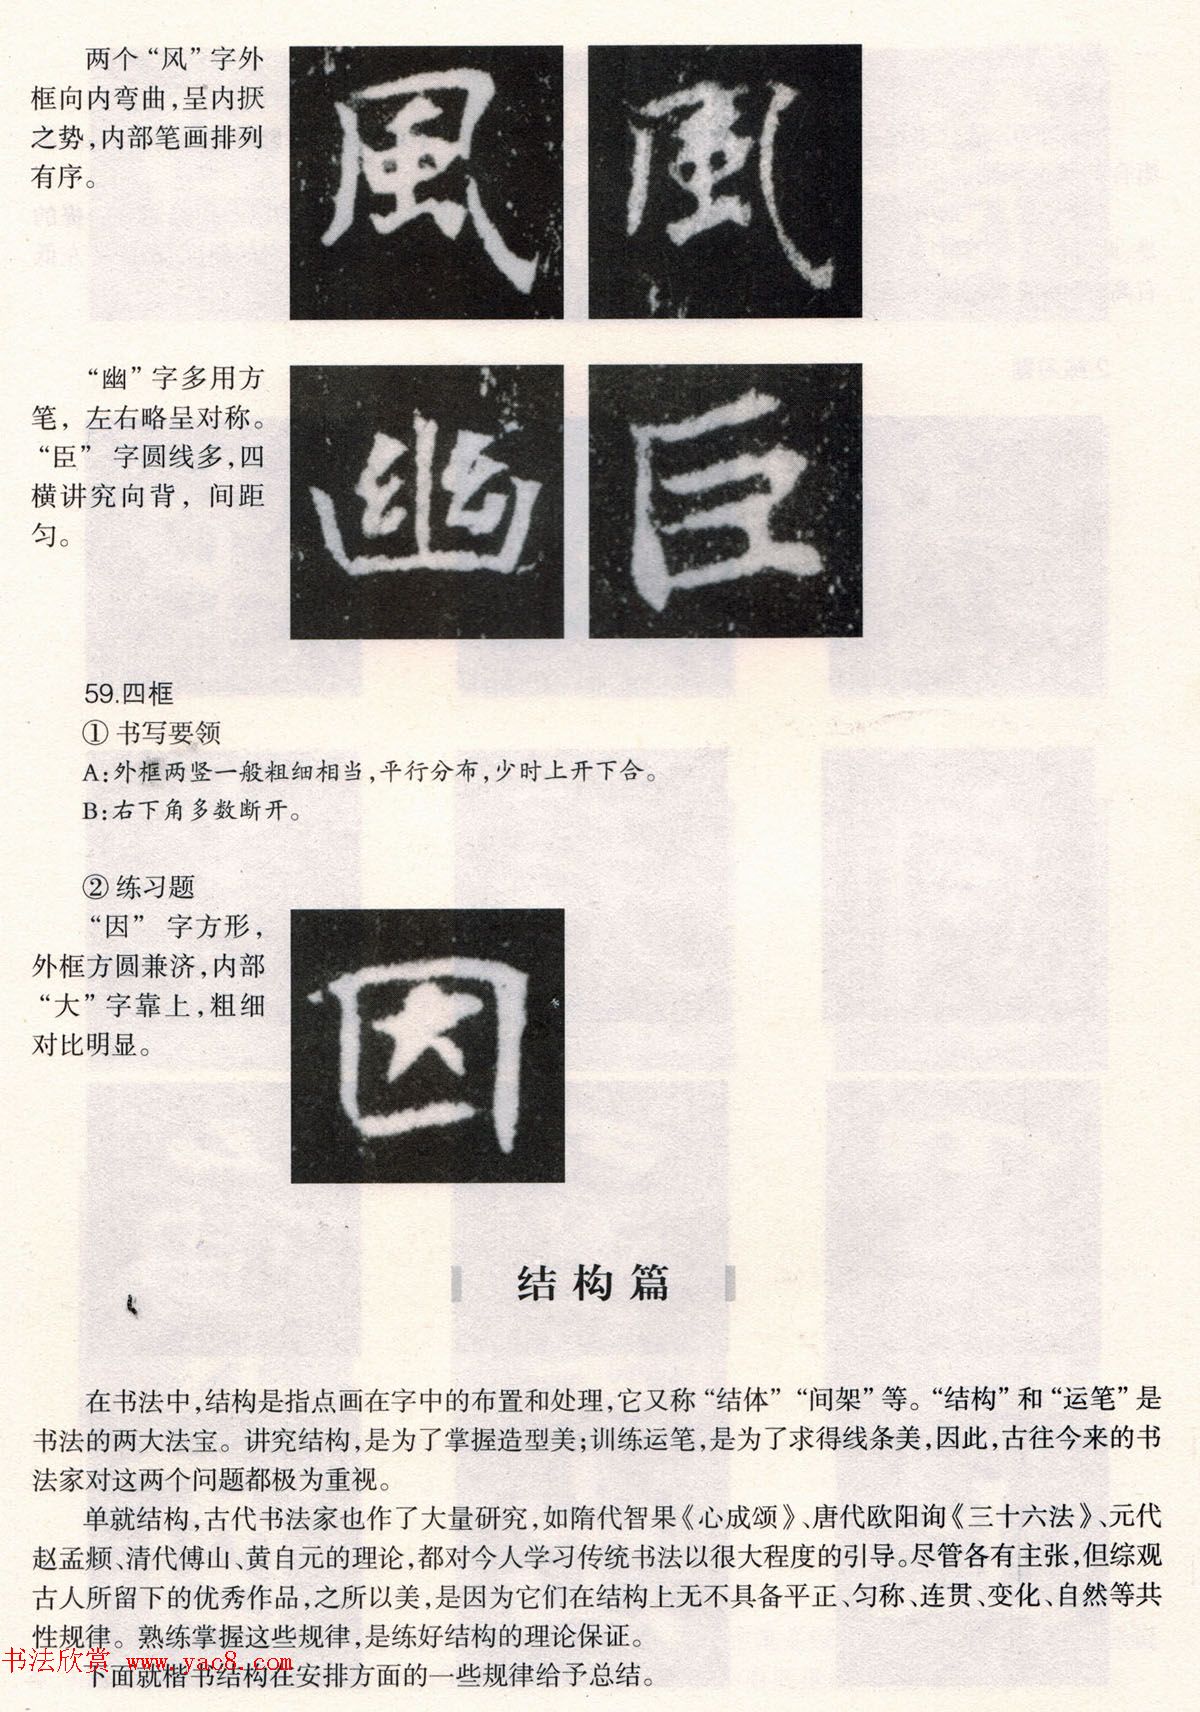 两个“风”字外
框向内弯曲，呈内抚
之势，内部笔画排列
有序。
風 風
“幽”字多用方
笔，左右略呈对称。
“臣”字圆线多，四
横讲究向背，间距
匀。
幽 臣
59.四框
① 书写要领
A:外框两竖一般粗细相当，平行分布，少时上开下合。
B:右下角多数断开。
② 练习题
“因”字方形，
外框方圆兼济，内部
“大”字靠上，粗细
对比明显。
因
结构篇
在书法中，结构是指点画在字中的布置和处理，它又称“结体”“间架”等。“结构”和“运笔”是
书法的两大法宝。讲究结构，是为了掌握造型美；训练运笔，是为了求得线条美，因此，古往今来的书
法家对这两个问题都极为重视。
单就结构，古代书法家也作了大量研究，如隋代智果《心成颂》、唐代欧阳询《三十六法》、元代
赵孟頫、清代傅山、黄自元的理论，都对今人学习传统书法以很大程度的引导。尽管各有主张，但综观
古人所留下的优秀作品，之所以美，是因为它们在结构上无不具备平正、匀称、连贯、变化、自然等共
性规律。熟练掌握这些规律，是练好结构的理论保证。
下面就楷书结构在安排方面的一些规律给予总结。
书法欣赏 www.yac8.com